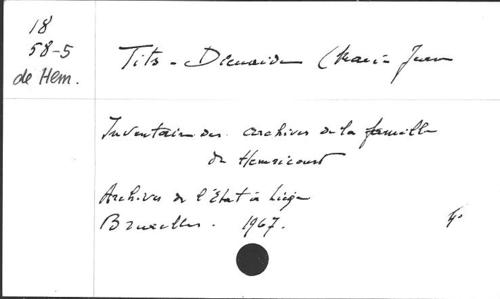 18
58-5
de Hem.
Tits - Dieuaide (Marie Jeanne
Inventaire des archives de la famille
de Hemricourt
Archives de l'Etat à Liège
Bruxelles. 1967.